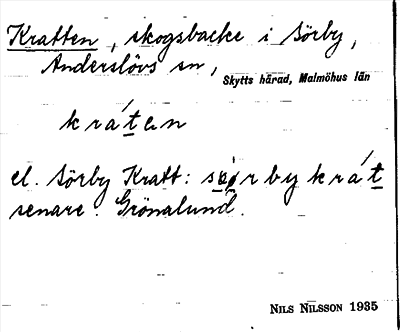 Kratten, skogsbacke i Sörby,
Anderslövs sn,
Skytts härad, Malmöhus län
krátan
el. Sörby Kratt: sørbykrát
senare. Grönalund.
NILS NILSSON 1935